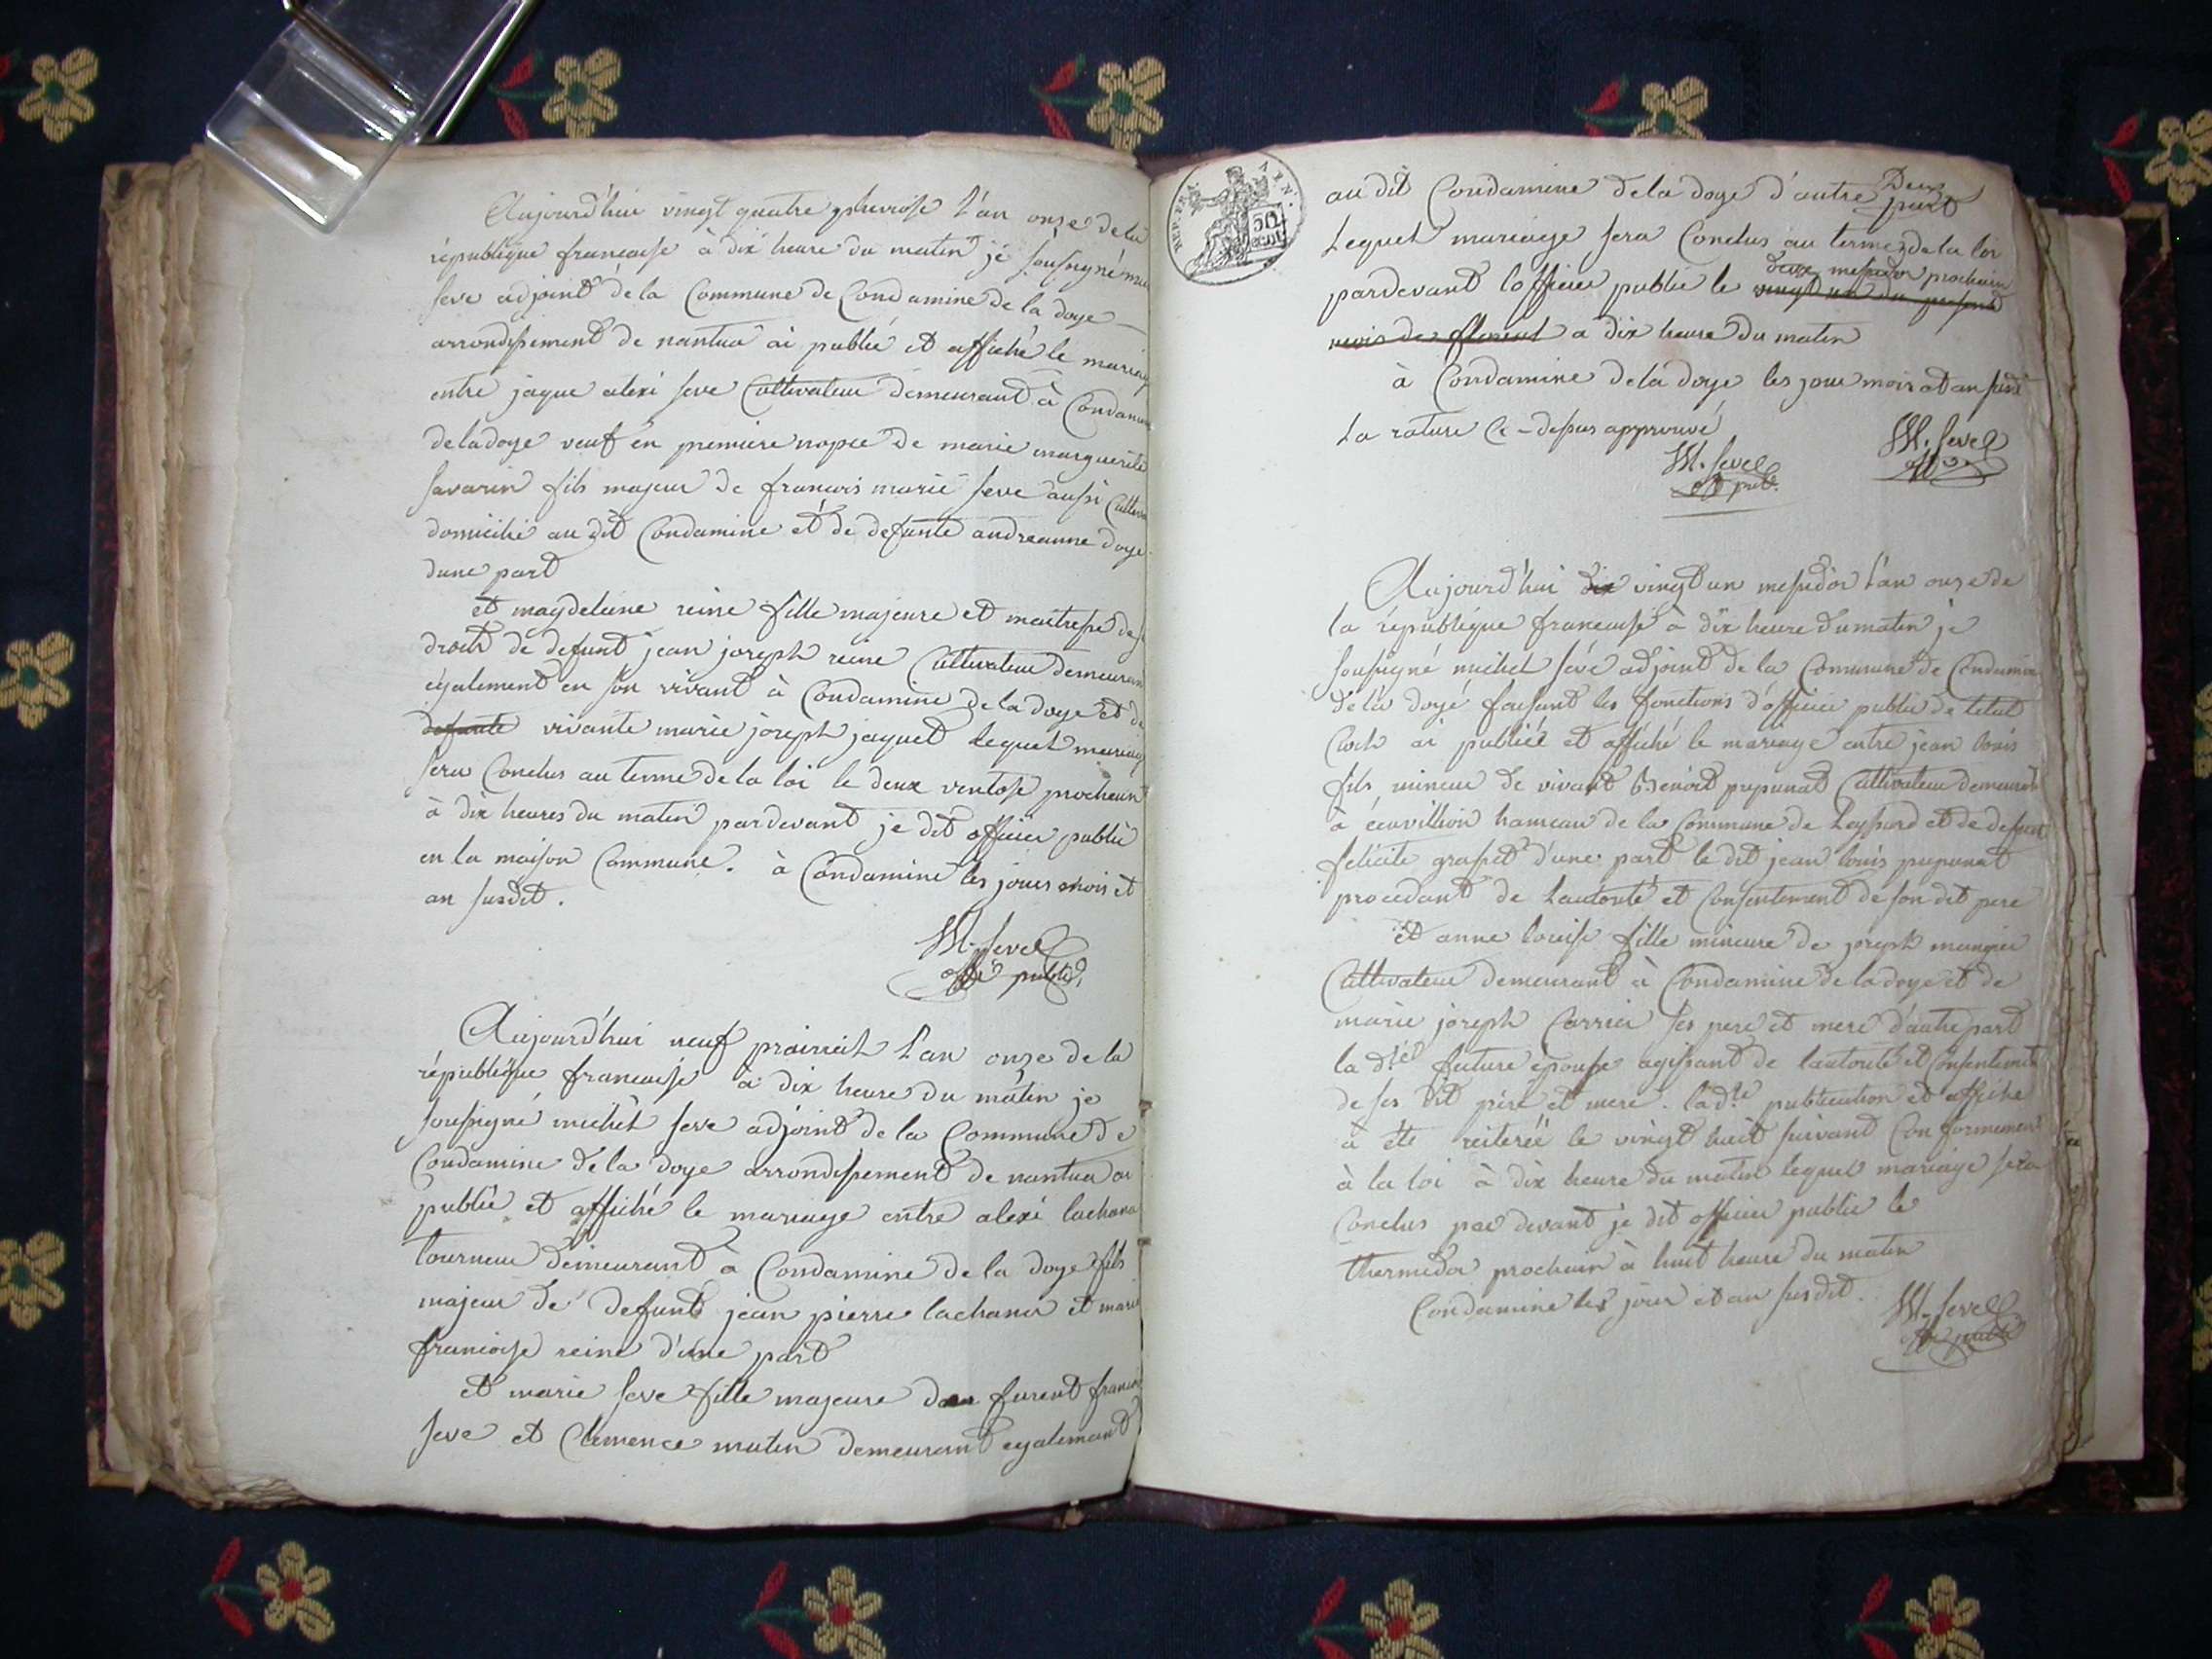 Aujourd'hui vingt quatre pluviose l'an onze de la
république francaise à dix heure du matin je sousigné
seve adjoint de la Commune de Condamine de la doye
arrondissement de nantua ai publié et affiché le mariag
entre jaque alexi seve Cultivateur demeurant à Condam
de la doye veuf en premiere nopce de marie marguerite
savarin fils majeur de francois marie seve aussi Cultiv
domicilié au dit Condamine et de defunte andreanne doye
dune part
et magdeleine reine fille majeure et maitresse de
droits de defunt jean joseph reine Cultivateur demeuran
egalement en son vivant à Condamine de la doye et de
defunte vivante marie joseph jaquet lequel mariag
sera Conclus au terme de la loi le deux ventose prochain
à dix heures du matin pardevant je dit officier public
en la maison Commune. à Condamine les jours mois et
an susdit.
M. Seve
offi public
Aujourd'hui neuf prairial l'an onze de la
république francaise à dix heure du matin je
sousigné michel seve adjoint de la Commune de
Condamine de la doye arrondissement de nantua ai
publié et affiché le mariage entre alexi lachana
tourneur demeurant à Condamine de la doye fils
majeur de defunt jean pierre lachana et marie
francoise reine d'une part
et marie seve fille majeure furent francois
seve et Clemence matin demeurant egalement
REP. FRA.
50
CENT.
au dit Condamine de la doye d'autre part
Lequel mariage sera Conclus au termes de la loi
deux messidor prochain
pardevant lofficier public le vingt un du present
mois de floreal a dix heure du matin
à Condamine de la doye les jour mois et an susdit
La rature Ci-dessus approuvé
M. Seve
M. Seve
off pub.
Aujourd'hui dix vingt un messidor l'an onze de
la république francaise à dix heure du matin je
sousigné michel sevé adjoint de la Commune de Condamine
de la doye faisant les fonctions d'officier public de letat
Civil ai publié et affiché le mariage entre jean louis
fils mineur de vivant Benoit pupunat Cultivateur demeurant
à écuvillion hameau de la Commune de Leyssard et de defunte
felicite grasset d'une part le dit jean louis pupunat
procedant de Lautorité et Consentement de son dit pere
et anne louise fille mineure de joseph mangier
Cultivateur demeurant à Condamine de la doye et de
marie joseph Carrier ses pere et mere d'autre part
la dte future epouse agissant de lautorité et Consentement
de ses dit père et mere. ladte publication et affiche
a ete reiterée le vingt huit suivant Conformement
à la loi à dix heure du matin lequel mariage sera
Conclus par devant je dit officier public le
thermidor prochain à huit heure du matin
Condamine les jour et an susdit.
M. Seve
off public